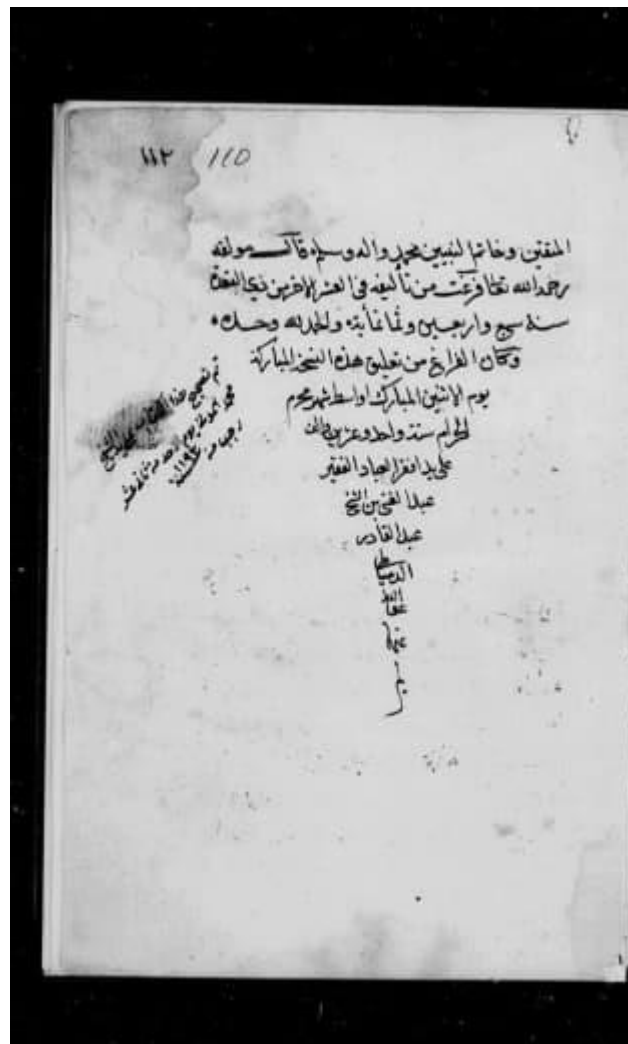 ١١٢ 110
المتقين وخاتم النبيين محمد واله وسلم قال مولفه
رحمه الله تعا فرغت من تأليفه في العشر الاخر من ذي القعدة
سنة سبع واربعين وثمانماية والحمد لله وحده
وكان الفراغ من تعليق هذه النسخة المباركة
يوم الاثنين المبارك اواسط شهر محرم
الحرام سنة واحد وعشرين
على يد افقر العباد الفقير
عبد الغني بن الشيخ
عبد القادر
الدمياطي
تم تصحيح هذا
يوم
رجب